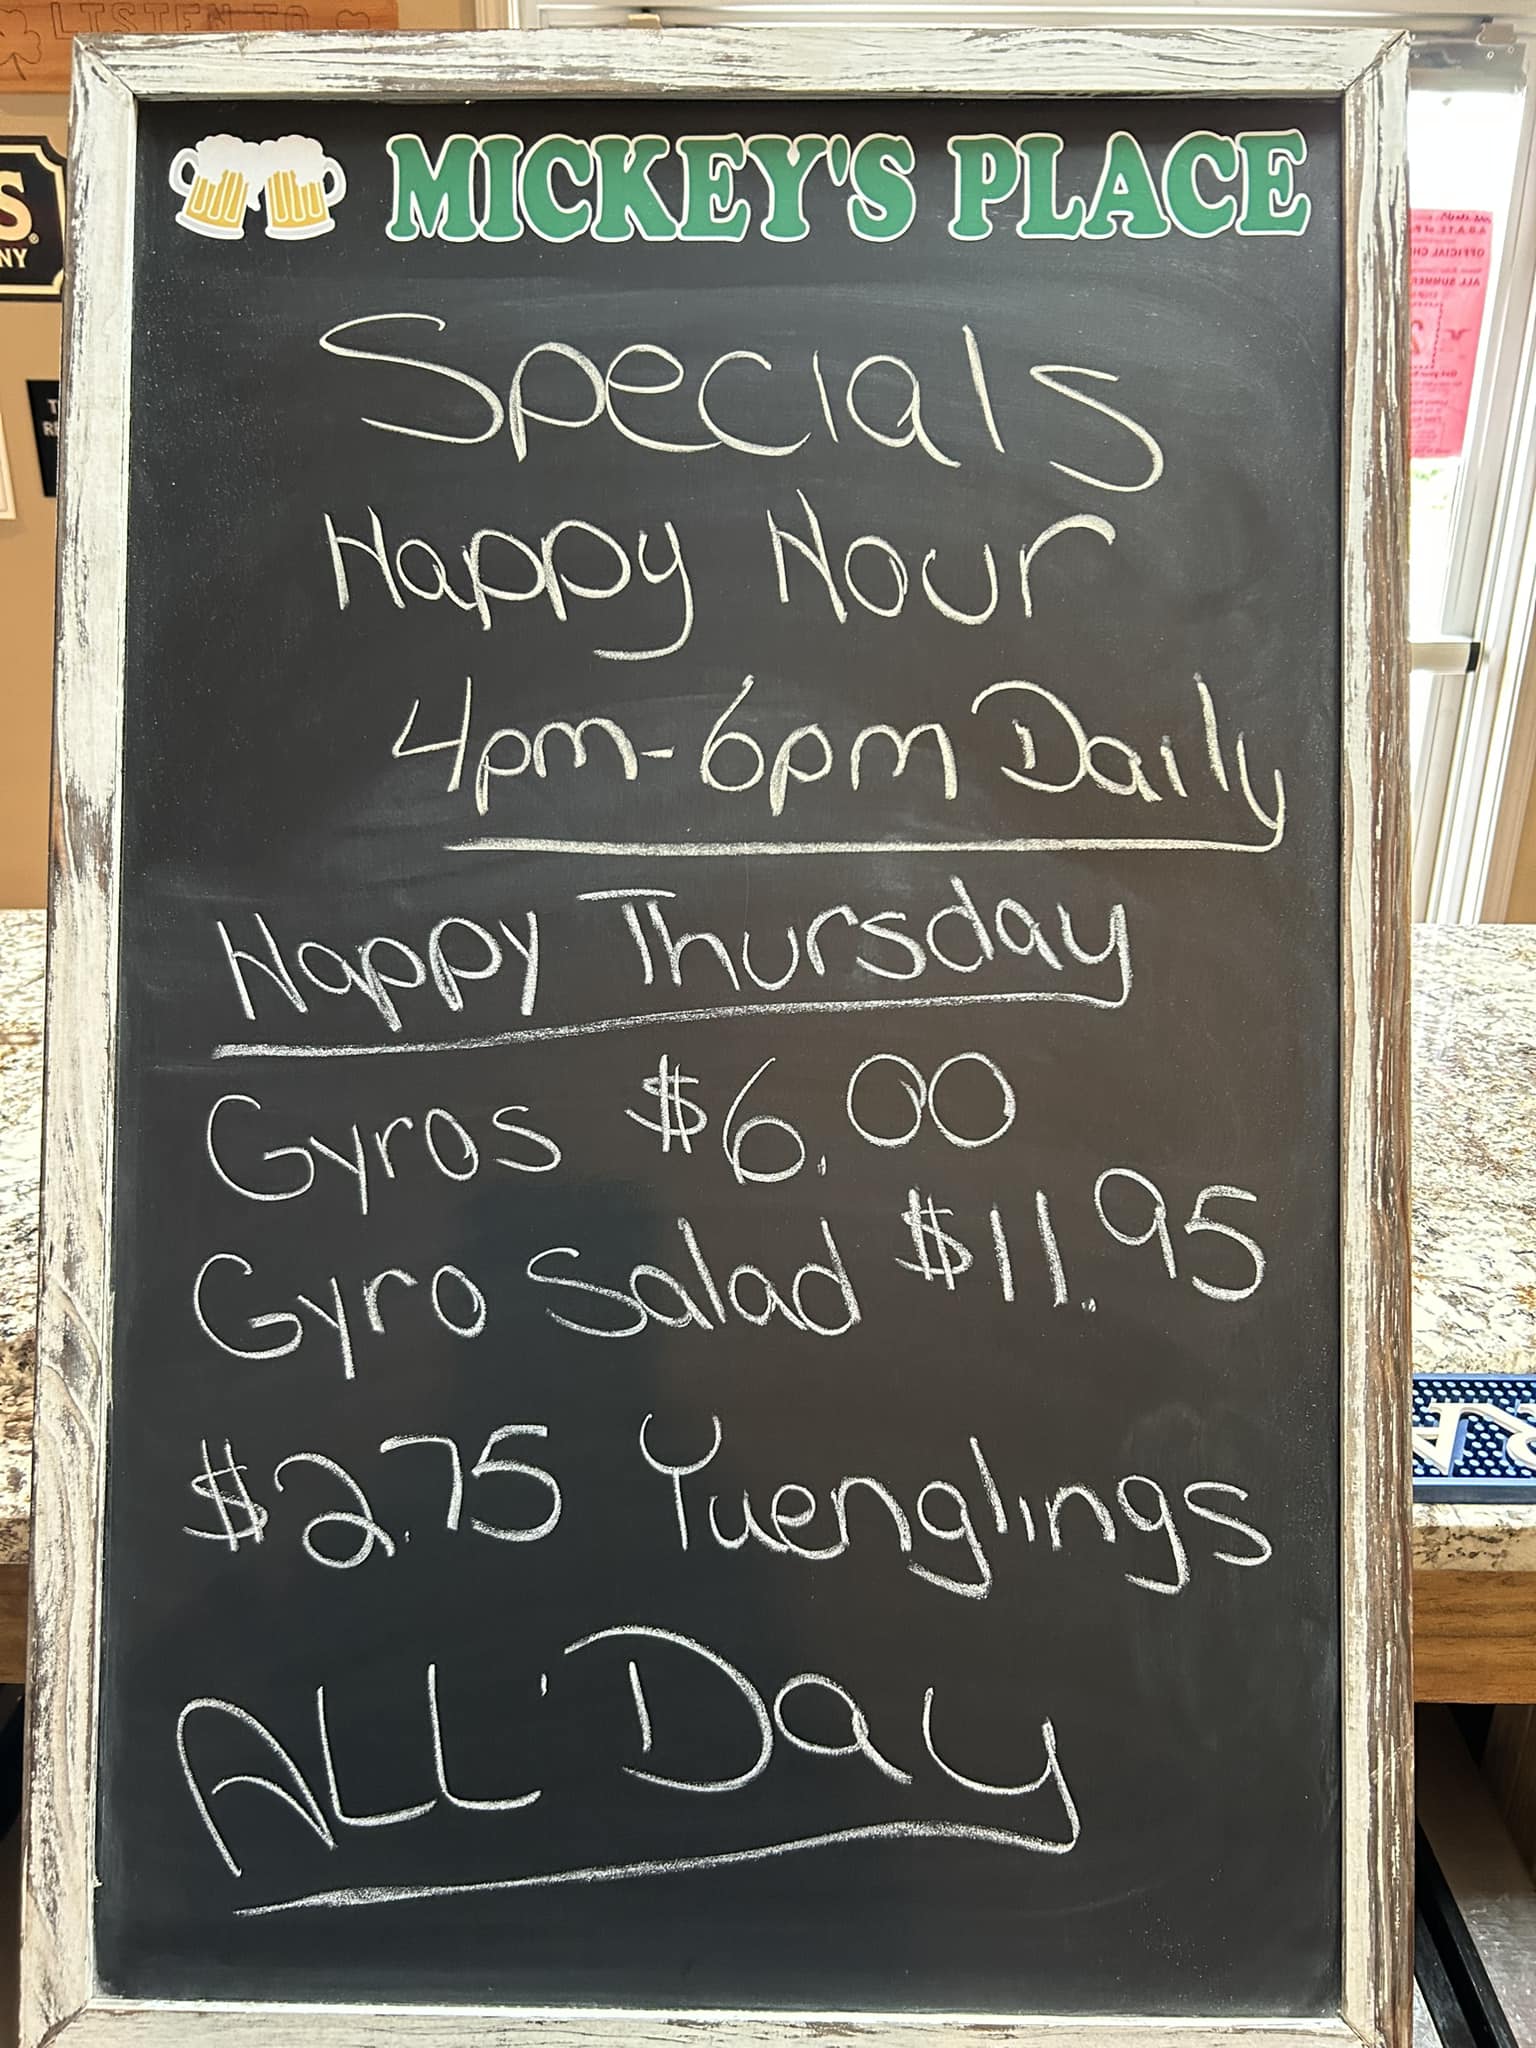 LISTEN TO
MICKEY'S PLACE
S®
NY
Specials
Happy Hour
4pm-6pm Daily
Happy Thursday
Gyros $6.00
Gyro Salad $11.95
$2.75 Yuenglings
ALL Day